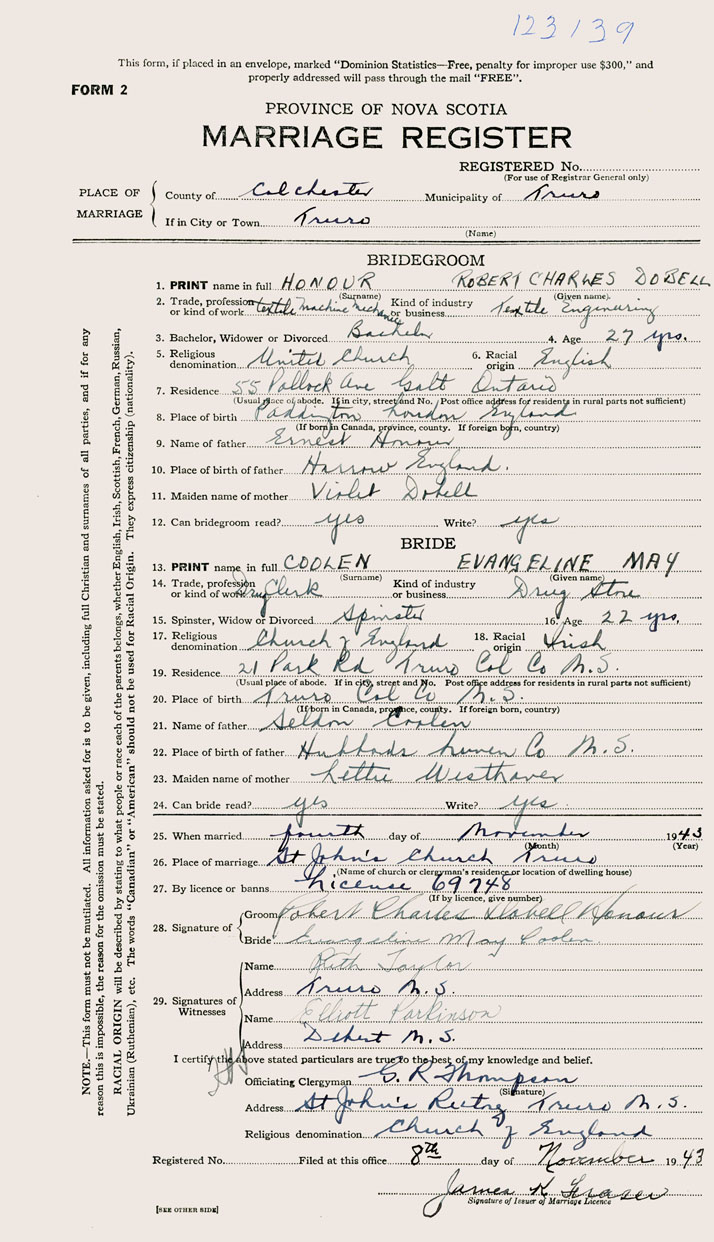 123139
This form, if placed in an envelope, marked “Dominion Statistics—Free, penalty for improper use $300,” and
properly addressed will pass through the mail “FREE”.
FORM 2
PROVINCE OF NOVA SCOTIA
MARRIAGE REGISTER
REGISTERED No.
(For use of Registrar General only)
PLACE OF MARRIAGE
County of Colchester Municipality of Truro
If in City or Town Truro
(Name)
BRIDEGROOM
1. PRINT name in full HONOUR ROBERT CHARLES DOBELL
(Surname) (Given name)
2. Trade, profession or kind of work textile machine mechanic Kind of industry or business Textile Engineering
3. Bachelor, Widower or Divorced Bachelor 4. Age 27 yrs.
5. Religious denomination United Church 6. Racial origin English
7. Residence 55 Pollock Ave Galt Ontario
(Usual place of abode. If in city, street and No. Post office address for residents in rural parts not sufficient)
8. Place of birth Paddington London England
(If born in Canada, province, county. If foreign born, country)
9. Name of father Ernest Honour
10. Place of birth of father Harrow England.
11. Maiden name of mother Violet Dobell
12. Can bridegroom read? yes Write? yes
BRIDE
13. PRINT name in full COOLEN EVANGELINE MAY
(Surname) (Given name)
14. Trade, profession or kind of work Drug Clerk Kind of industry or business Drug Store
15. Spinster, Widow or Divorced Spinster 16. Age 22 yrs.
17. Religious denomination Church of England 18. Racial origin Irish
19. Residence 21 Park Rd Truro Col Co N.S.
(Usual place of abode. If in city, street and No. Post office address for residents in rural parts not sufficient)
20. Place of birth Truro Col Co N.S.
(If born in Canada, province, county. If foreign born, country)
21. Name of father Seldon Coolen
22. Place of birth of father Hubbads Lunen Co N.S.
23. Maiden name of mother Lettie Westhaver
24. Can bride read? yes Write? yes
25. When married fourth day of November 1943
(Month) (Year)
26. Place of marriage St John's Church Truro
(Name of church or clergyman's residence or location of dwelling house)
27. By licence or banns License 69748
(If by licence, give number)
28. Signature of
Groom Robert Charles Dobell Honour
Bride Evangeline May Coolen
29. Signatures of Witnesses
Name Ruth Taylor
Address Truro N.S.
Name Elliott Parkinson
Address Debert N.S.
I certify the above stated particulars are true to the best of my knowledge and belief.
Officiating Clergyman G. R Thompson
(Signature)
Address St John's Rectory Truro N.S.
Religious denomination Church of England
Registered No. Filed at this office 8th day of November 1943
James K Fraser
Signature of Issuer of Marriage Licence
[SEE OTHER SIDE]
NOTE.—This form must not be mutilated. All information asked for is to be given, including full Christian and surnames of all parties, and if for any
reason this is impossible, the reason for the omission must be stated.
RACIAL ORIGIN will be described by stating to what people or race each of the parents belongs, whether English, Irish, Scottish, French, German, Russian,
Ukrainian (Ruthenian), etc. The words “Canadian” or “American” should not be used for Racial Origin. They express citizenship (nationality).